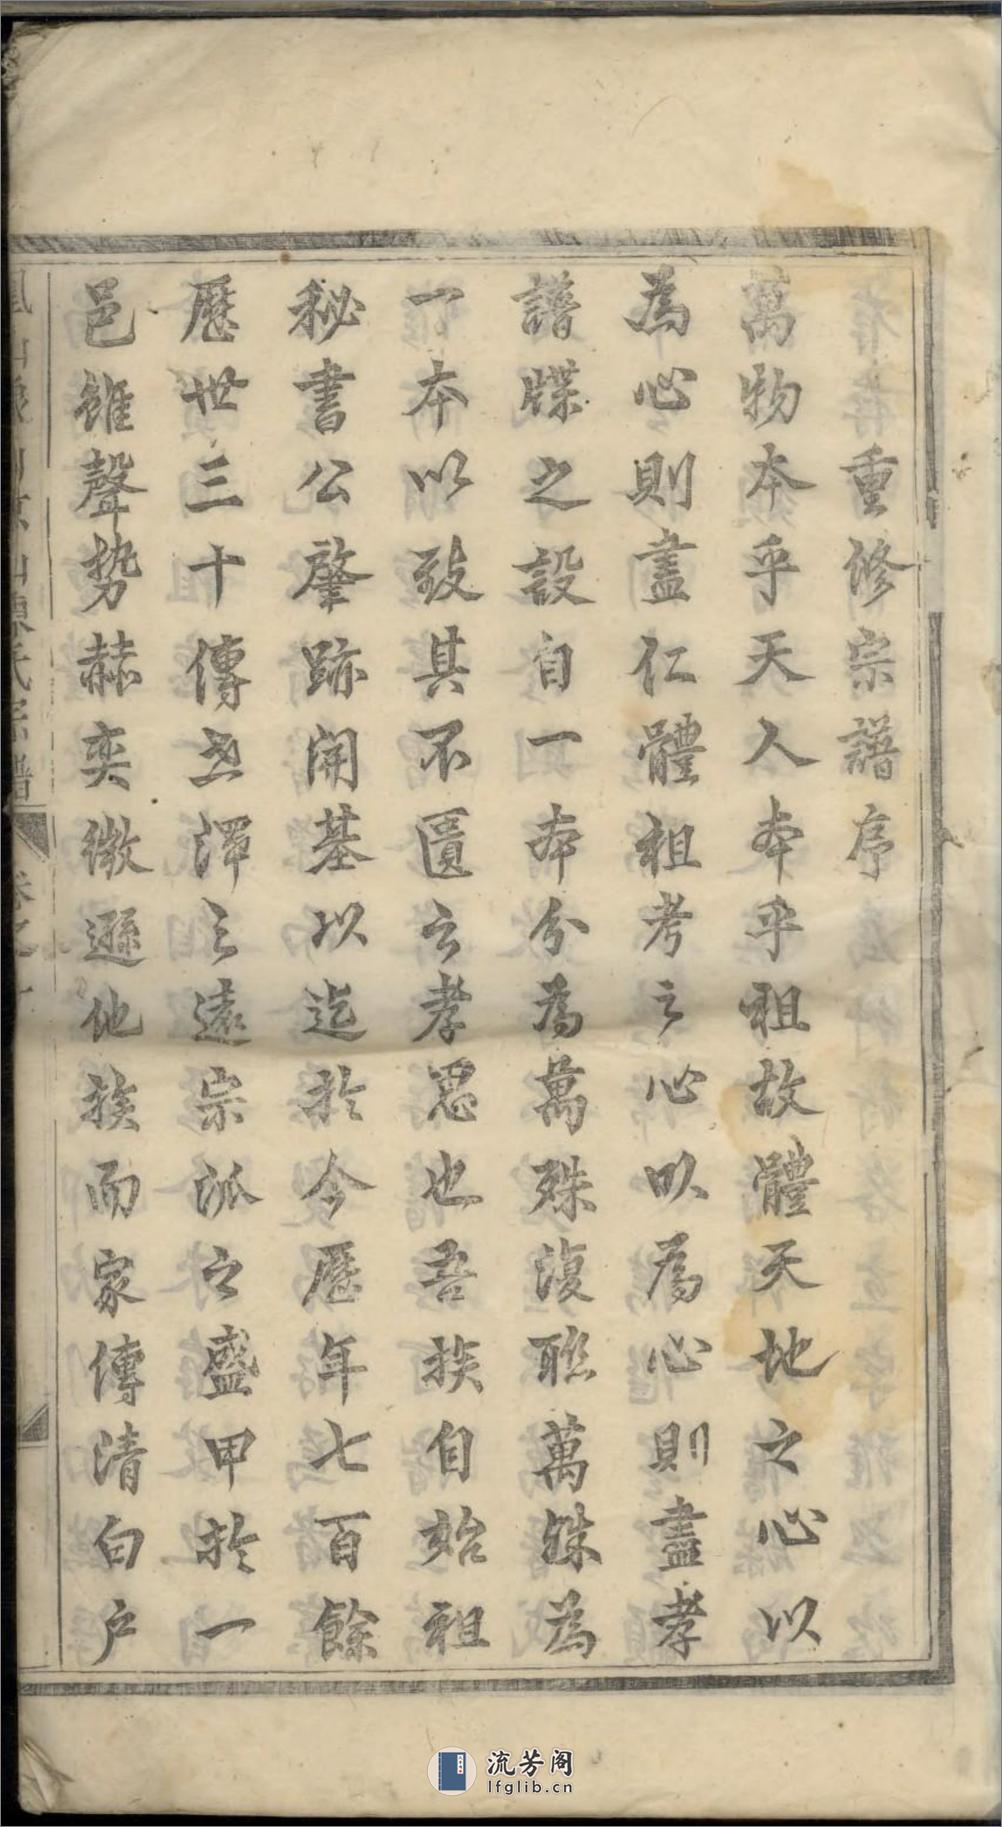 重修宗譜序
萬物本乎天人本乎祖故體天地之心以
為心則盡仁體祖考之心以為心則盡孝
譜牒之設自一本分為萬殊復聮萬殊為
一本以致其不匱之孝思也吾族自始祖
秘書公肇跡開基以迄於今歷年七百餘
歷世三十傳世澤之遠宗派之盛甲於一
邑雖聲势赫奕微遜他族而家傳清白户
氏宗譜
流芳阁
lfglib.cn